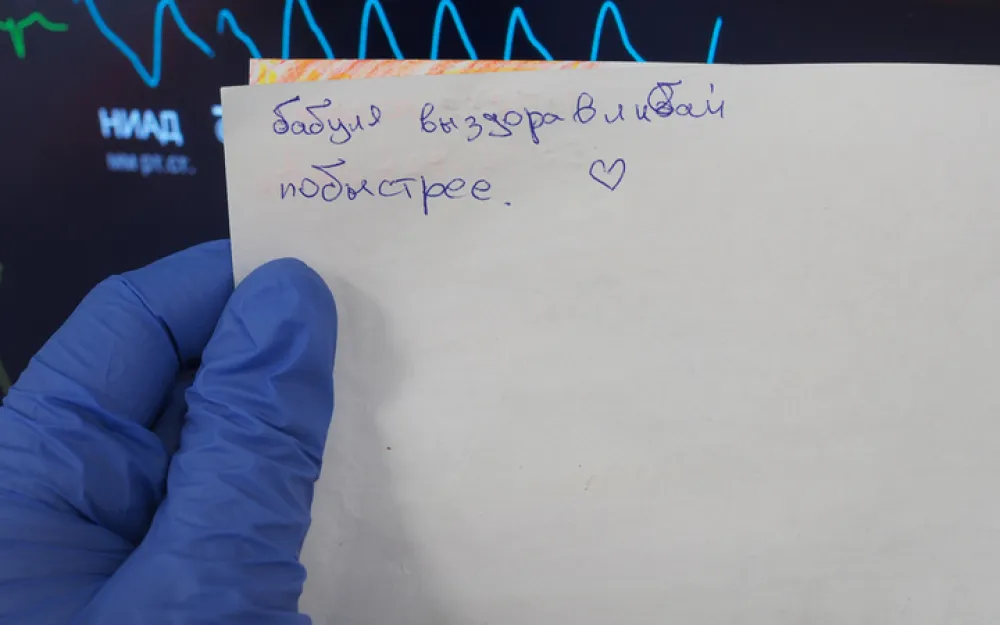 НИАД
мм рт.ст.
бабуля выздоравливай
побыстрее.